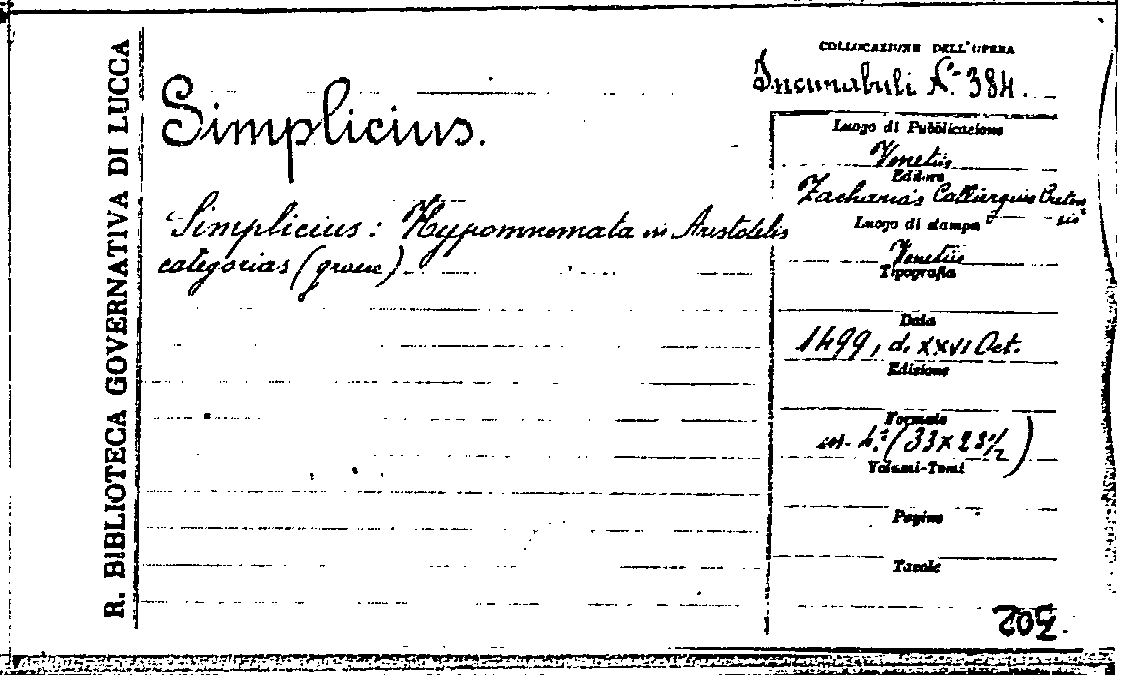 R. BIBLIOTECA GOVERNATIVA DI LUCCA
COLLOCAZIONE DELL'OPERA
Incunabuli N.º 384.
Simplicius.
Simplicius: Hypomnemata in Aristotelis
categorias (graece)
Luogo di Pubblicazione
Venetiis
Editore
Zacharias Calliergus Creten
sis
Luogo di stampa
Venetiis
Tipografia
Data
1499, d. XXVI Oct.
Edizione
Formato
in-4.º (33×23½)
Volumi-Tomi
Pagine
Tavole
302.